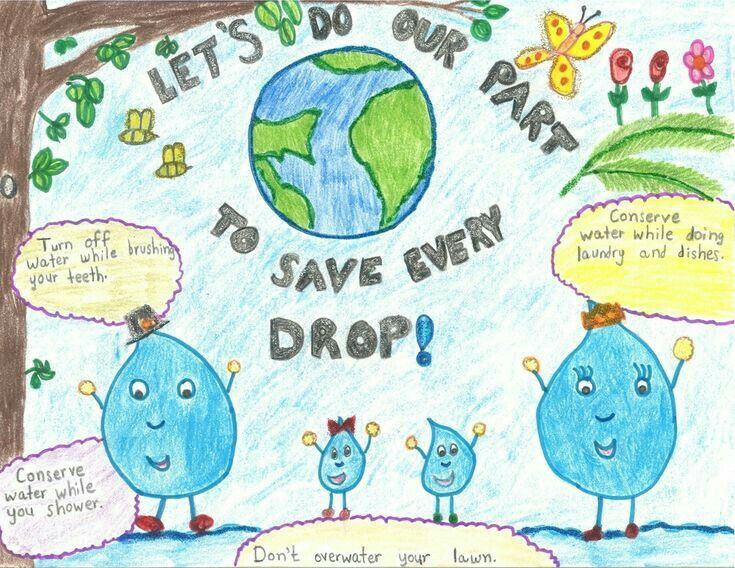 LET'S DO OUR PART
TO SAVE EVERY
DROP!
Turn off
water while brushing
your teeth.
Conserve
water while doing
laundry and dishes.
Conserve
water while
you shower.
Don't overwater your lawn.